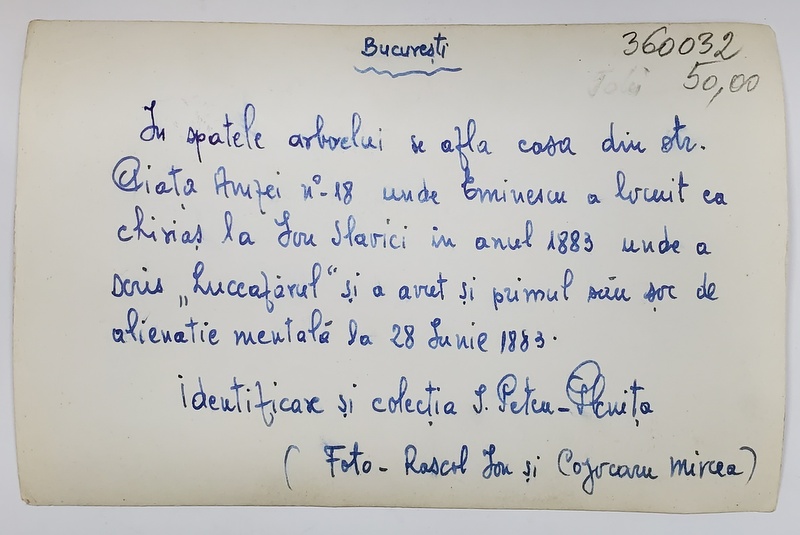 București
360032
50,00
In spatele arborelui se afla casa din str.
Piața Amzei nº-18 unde Eminescu a locuit ca
chiriaș la Ion Slavici in anul 1883 unde a
scris „Luceafărul" și a avut și primul său șoc de
alienatie mentală la 28 Iunie 1883.
identificare și colecția I. Petcu-Plenița
( Foto - Rascol Ion și Cojocaru Mircea)